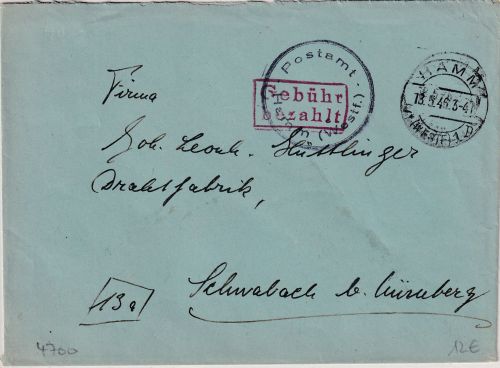 Postamt
Hamm (Westf.)
Gebühr
bezahlt
HAMM
13.5.46.3-4
(WESTF) 1 b
Firma
Joh. Leonh. Hüttlinger
Drahtfabrik,
13a
Schwabach b. Nürnberg
4700
12€